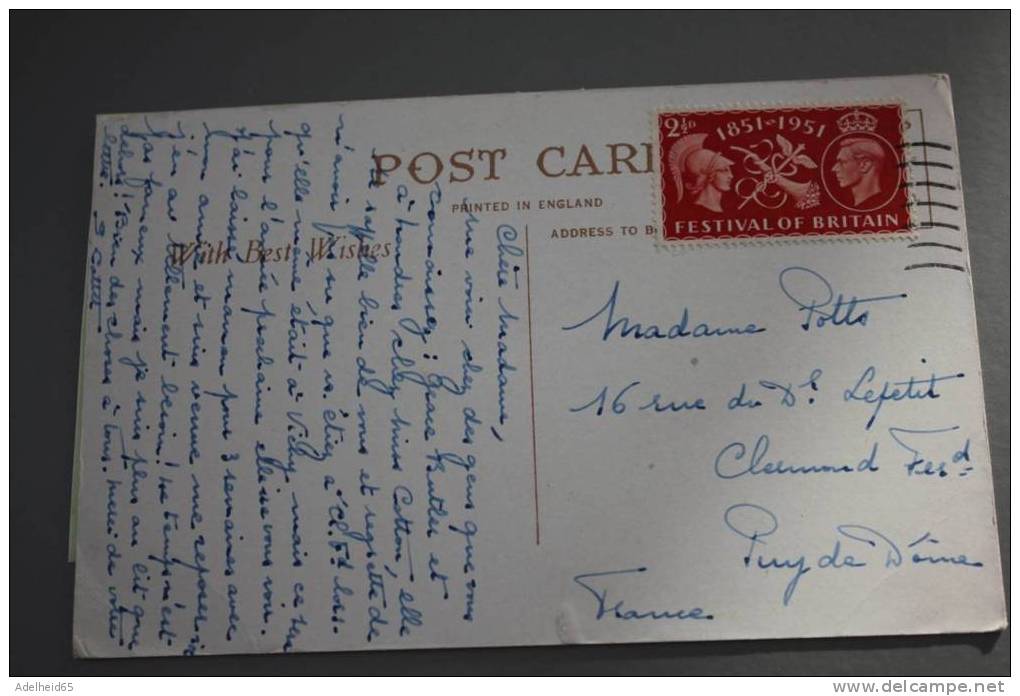 POST CAR
PRINTED IN ENGLAND
ADDRESS TO B
With Best Wishes
2½D
1851-1951
FESTIVAL OF BRITAIN
Chère Madame,
Me voici chez des gens que vous
connaissez: Grace Butler et
à Londres chez Miss Cotton, elle
se rappelle bien de vous et regrette de
n'avoir pas su que vs. étiez à Cl. Fd lors
qu'elle-même était à Vichy mais ce sera
pour l'année prochaine elle ira vous voir.
J'ai laissé maman pour 3 semaines avec
mon amie et suis venue me reposer ici
j'en ai tellement besoin! Le temps n'est
pas fameux mais je suis plus au lit que
dehors! Bien des choses à tous, merci de votre
lettre.
Madame Potts
16 rue du Dr Lefetit
Clermond Ferd
Puy de Dôme
France
Adelheid65
www.delcampe.net